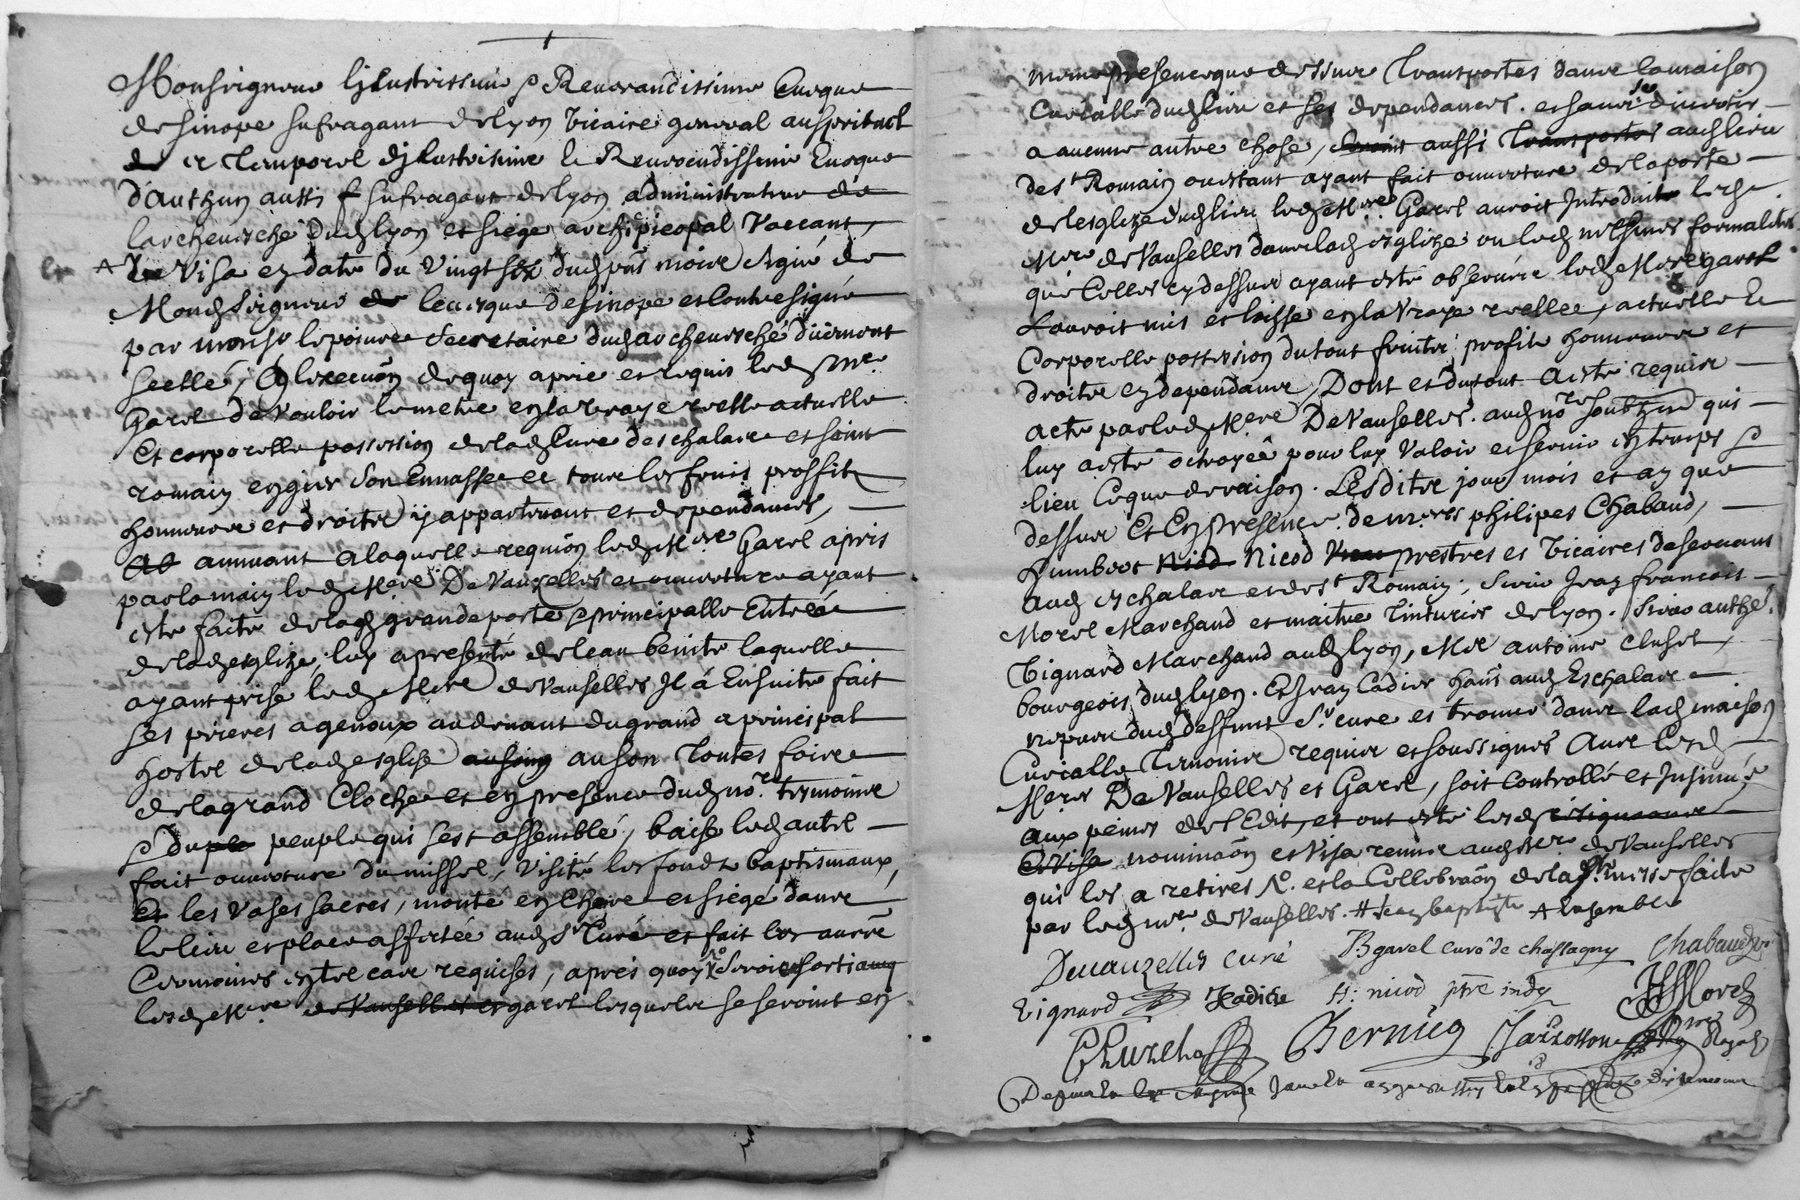 Monseigneur Illustrissime & Reverandissime Evesque
de sinope sufragant de lyon vicaire general au sperituel
et Temporel d'illustrissime & Reverendissime Evesque
d'Authun aussi sufragant de lyon administrateur de
larchevesché dud lyon et siege archiepicopal Vaccant,
Visa en datte du Vingt six dud p̃nt moire signé de
Mond Seigneur levesque de sinope et Contresigné
par monsr lepoivre secretaire dud archevesché duement
scellé, En lexecuõn dequoy aprié et requis led Mre
Garel de vouloir lemetre en la vraye reelle actuelle
Et corporelle possession de lad Cure deschalas et saint
romain en gier son annexe et tous les fruis proffits
honneurs et droits y appartenant et dependances,
annuant a laquelle requiõn led Mre Garel apres
par la main led Mere De Vauzelles et ouverture ayant
esté faite de lad grande porte & principalle Entrée
de lad esglize, luy a presenté de leau benite laquelle
ayant prise led Mere de Vauselles Il á Ensuitte fait
ses prieres a genoux au devant du grand & principal
hostel de lad esglise au son Toutes foire
de la grand Cloche et en presence dud nore tesmoins
& du peuple qui sest assemblé, baisé led autel
fait ouverture du missel, visité les fonds baptismaux,
les vases sacrés, monté en Chere et siegé dans
le lieu et place affectée aud Sr Curé et fait les autres
Ceremonies en tel cas requises, apres quoy Seroient sortis
lesd Mere garel lesquels se seroint en
mesme presence que dessus Transportés dans la maison
Curialle dud lieu et ses dependances. et sans se divertir
a aucune autre chose, aussi aud lieu
de st Romain ou estant ayant fait ouverture de la porte
de lesglize dud lieu led Mre Garel auroit Introduit led
Mere de Vauselles dans lad esglize ou led mesmes formalités
que Celles cy dessus ayant esté observées led Mere garel
Lauroit mis et laissé en la Vraye reelle, actuelle &
Corporelle possession du tout fruits, profits honneurs et
droits en dependans, Dont et du tout a esté requis
acte par led Mere De Vauselles. aud nore soubzné qui
luy a esté octroyée pour luy valoir et servir en temps &
lieu Ceque de raison. Lesdits jour mois et an que
dessus Et En presence de Mres philipes Chabaud,
humbert Nicod prestres et vicaires deservans
aud eschalas et de st Romain, sieur Jean francois
Morel Marchand et maitre Tinturier de lyon. sieur anthe.
Vignard Marchand aud lyon, Mre antoine cluzel,
bourgeois dud lyon. Et Jean Cadier hañt aud Eschalas
nepveu dud deffunt sr cure et trouvé dans lad maison
Curialle Temoins requis et soussignés Avec lesd
Meres De Vauselles et Garel, soit Controllé et Insinué
aux peines de l'Edit, et ont esté lesd
nominaõn et Visa remis aud Mere de Vauselles
qui les a retirés No. et la Cellebraõn de la ste messe faite
par led Mre de Vauselles. # Jean baptiste A Ensemble
Devauzelles curé B garel curé de chassagny Chabaud
Vignard JCadier H: nicod ptre indg JFMorel
Cluzel Bernicq